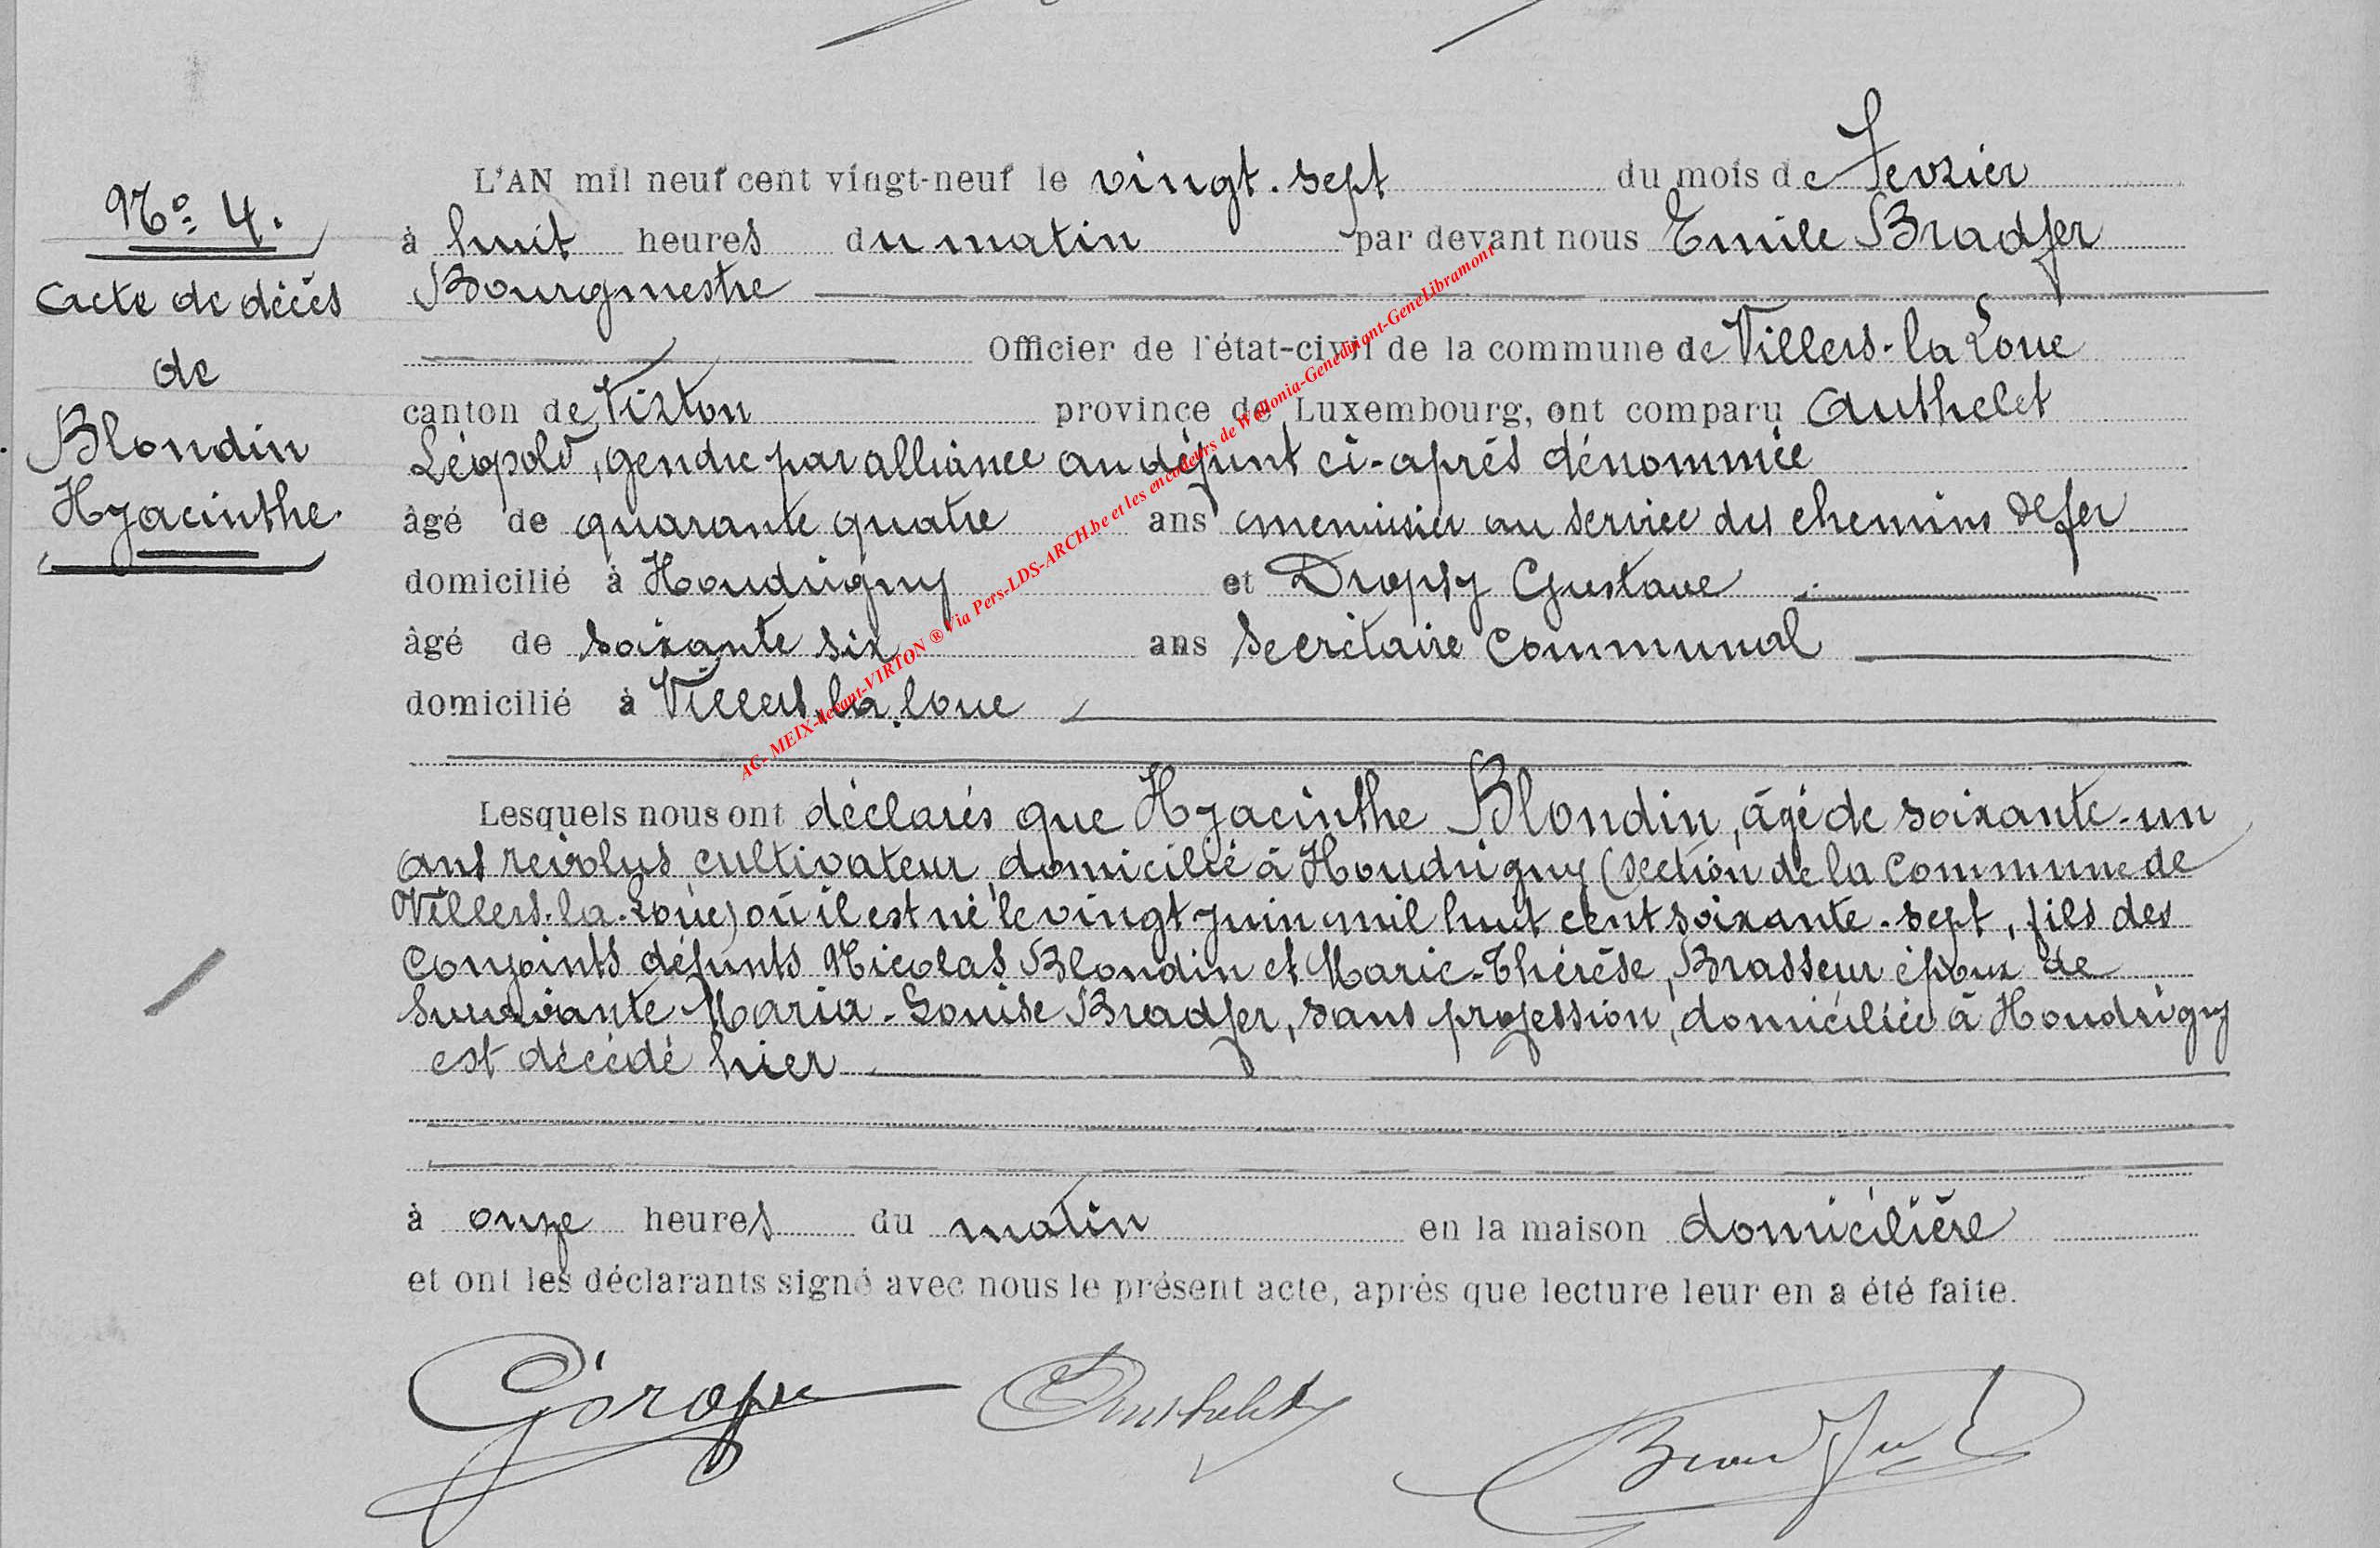 No 4.
Acte de décès
de
Blondin
Hyacinthe.
L'AN mil neuf cent vingt-neuf le vingt-sept du mois de Fevrier
à huit heures du matin par devant nous Emile Bradfer
Bourgmestre
Officier de l'état-civil de la commune de Villers-la Loue
canton de Virton province de Luxembourg, ont comparu Authelet
Léopold, gendre par alliance au défunt ci-après dénommée
âgé de quarante quatre ans menuisier au service des chemins de fer
domicilié à Houdrigny et Dropsy Gustave
âgé de soixante six ans secrétaire communal
domicilié à Villers-la-loue
Lesquels nous ont déclarés que Hyacinthe Blondin, âgé de soixante-un
ans révolus, cultivateur, domicilié à Houdrigny (section de la commune de
Villers-la-Loue) où il est né le vingt juin mil huit cent soixante-sept, fils des
conjoints défunts Nicolas Blondin et Marie-Thérèse, Brasseur époux de
survivante Maria-Louise Bradfer, sans profession, domiciliée à Houdrigny
est décédé hier
à onze heures du matin en la maison domicilière
et ont les déclarants signé avec nous le présent acte, après que lecture leur en a été faite.
Authelet Bradfer
AC- MEIX-devant-VIRTON ® Via Pers-LDS-ARCH.be et les encodeurs de Wallonia-Genedinant-GeneLibramont